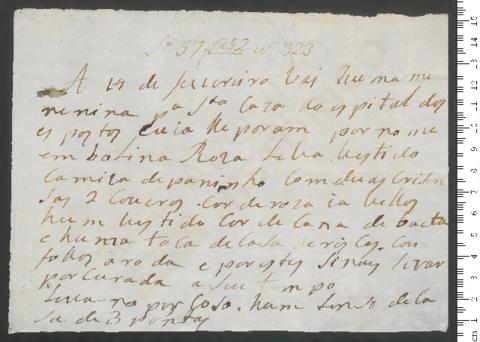 Lº 57 f 252 nº 323
A 14 de fevereiro vai huma me
nenina pª sta Caza do espital dos
espostos Cuia lhe poram por nome
em balina Roza Leva Vestido
Camiza de paninho Com duas
sas 2 Coeyros Cor de roza ia velhos
hum Vestido Cor de Cana de baeta
e huma toca de Casa de riscas Com
folhos a roda e por estes sinais sera
porcurada a seu tempo
Leva no pescoso hum sinto de la
sa de 3 pontas